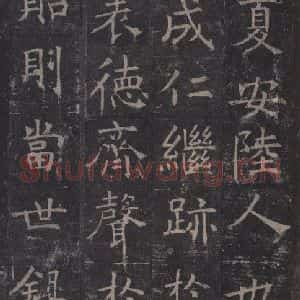 夏安陸人也
成仁繼跡於
表德齊聲於
則當世錄
Shufawang.CN